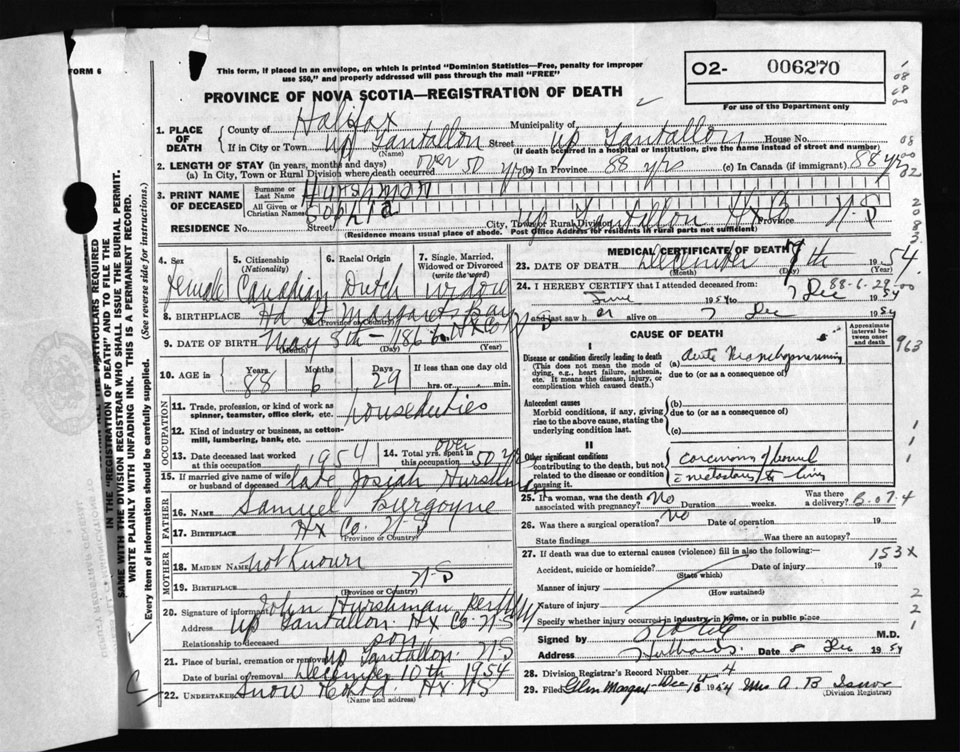 FORM 6
This form, if placed in an envelope, on which is printed "Dominion Statistics—Free, penalty for improper
use $50," and properly addressed will pass through the mail "FREE"
O2- 006270
For use of the Department only
PROVINCE OF NOVA SCOTIA—REGISTRATION OF DEATH
1. PLACE OF DEATH
County of Halifax Municipality of
If in City or Town Up Tantallon Street Up Tantallon House No.
(Name) (If death occurred in a hospital or institution, give the name instead of street and number)
2. LENGTH OF STAY (in years, months and days)
(a) In City, Town or Rural Division where death occurred over 50 yrs (b) In Province 88 yrs (c) In Canada (if immigrant) 88 yrs
3. PRINT NAME OF DECEASED
Surname or Last Name Hurshman
All Given or Christian Names Sophia
RESIDENCE No. Street City, Town or Rural Division Up Tantallon Hx Province N-S
(Residence means usual place of abode. Post Office Address for residents of rural parts not sufficient)
4. Sex female
5. Citizenship (Nationality) Canadian
6. Racial Origin Dutch
7. Single, Married, Widowed or Divorced (write the word) widow
8. BIRTHPLACE Hd St Margarets Bay Hx Co N-S
(Province or Country)
9. DATE OF BIRTH May 8th - 1866
(Month) (Day) (Year)
10. AGE in Years 88 Months 6 Days 29 If less than one day old hrs. or min.
OCCUPATION
11. Trade, profession, or kind of work as spinner, teamster, office clerk, etc. houseduties
12. Kind of industry or business, as cotton-mill, lumbering, bank, etc.
13. Date deceased last worked at this occupation 1954
14. Total yrs. spent in this occupation over 50 yrs
15. If married give name of wife or husband of deceased late Josiah Hurshman
FATHER
16. Name Samuel Burgoyne
17. BIRTHPLACE Hx Co. N-S
(Province or Country)
MOTHER
18. MAIDEN NAME not Known
19. BIRTHPLACE N-S
(Province or Country)
20. Signature of informant John Hurshman
Address Up Tantallon. Hx Co. N-S
Relationship to deceased son
21. Place of burial, cremation or removal Up Tantallon. N-S
Date of burial or removal December 10th 1954
22. UNDERTAKER Snow Hx NS
(Name and address)
MEDICAL CERTIFICATE OF DEATH
23. DATE OF DEATH December 7th 1954
(Month) (Year)
88-6-29-00
24. I HEREBY CERTIFY that I attended deceased from:
June 1954 to 7 Dec 1954
and last saw her alive on 7 Dec 1954
CAUSE OF DEATH
Approximate interval between onset and death
963
I
Disease or condition directly leading to death (a)
(This does not mean the mode of dying, e.g., heart failure, asthenia, etc. It means the disease, injury, or complication which caused death.)
due to (or as a consequence of)
Antecedent causes
Morbid conditions, if any, giving rise to the above cause, stating the underlying condition last.
(b)
due to (or as a consequence of)
(c)
II
Other significant conditions contributing to the death, but not related to the disease or condition causing it.
carcinoma of bowel
metastasis to liver
25. If a woman, was the death associated with pregnancy? No Duration weeks. Was there a delivery? B-07.4
26. Was there surgical operation? No Date of operation 19
State findings Was there an autopsy?
27. If death was due to external causes (violence) fill in also the following:— 153X
Accident, suicide or homicide? Date of injury 19
(State which)
Manner of injury
(How sustained)
Nature of injury
Specify whether injury occurred in industry, in home, or in public place
Signed by M.D.
Address Hubbards. Date 8 Dec 1954
28. Division Registrar's Record Number 4
29. Filed Glen Margaret Dec 1954 Mrs A. B
(Division Registrar)
IN THE "REGISTRATION OF DEATH" AND TO FILE THE
SAME WITH THE DIVISION REGISTRAR WHO SHALL ISSUE THE BURIAL PERMIT.
WRITE PLAINLY WITH UNFADING INK. THIS IS A PERMANENT RECORD.
Every item of information should be carefully supplied. (See reverse side for instructions.)